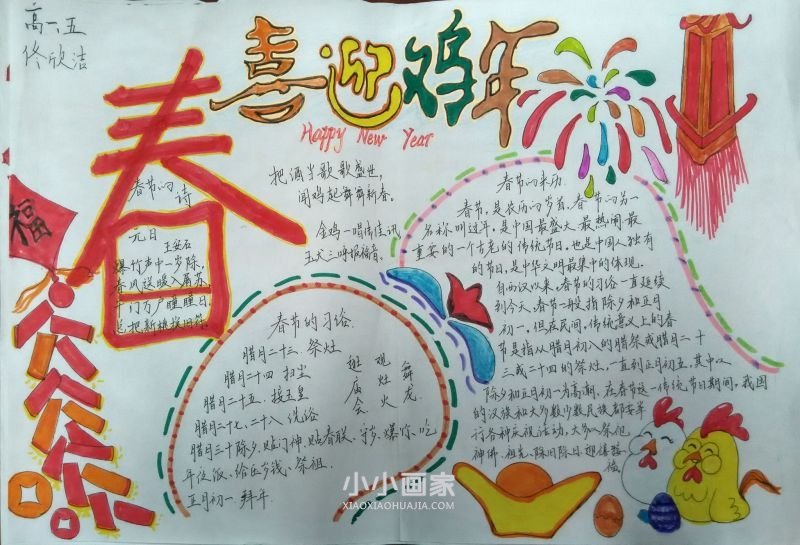 高一、五
佟欣洁
喜迎鸡年
Happy New Year
春
福
春节的诗
元日
王安石
爆竹声中一岁除，
春风送暖入屠苏
千门万户瞳瞳日
总把新桃换旧符
把酒当歌歌盛世，
闻鸡起舞舞新春。
金鸡一唱传佳讯
玉犬三呼报福音。
春节的习俗
腊月二十三、祭灶
腊月二十四 扫尘
腊月二十五、接玉皇
腊月二十七、二十八 洗浴
腊月三十除夕、贴门神、贴春联、守岁、爆竹、吃
年夜饭、给压岁钱、祭祖
正月初一 拜年
逛庙会
观灶火
舞龙
春节的来历
春节，是农历的岁首，春节的另一
名称叫过年，是中国最盛大、最热闹、最
重要的一个古老的传统节日，也是中国人独有
的节日，是中华文明最集中的体现，
自西汉以来，春节的习俗一直延续
到今天，春节一般指除夕和正月
初一，但在民间，传统意义上的春
节是指从腊月初八的腊祭或腊月二十
三或二十四的祭灶，一直到正月初五，其中以
除夕和正月初一为高潮，在春节这一传统节日期间，我国
的汉族和大多数少数民族都要举
行各种庆祝活动，大多以祭祀
神佛、祖先、除旧除日、迎禧接
福
小小画家
XIAOXIAOHUAJIA.COM